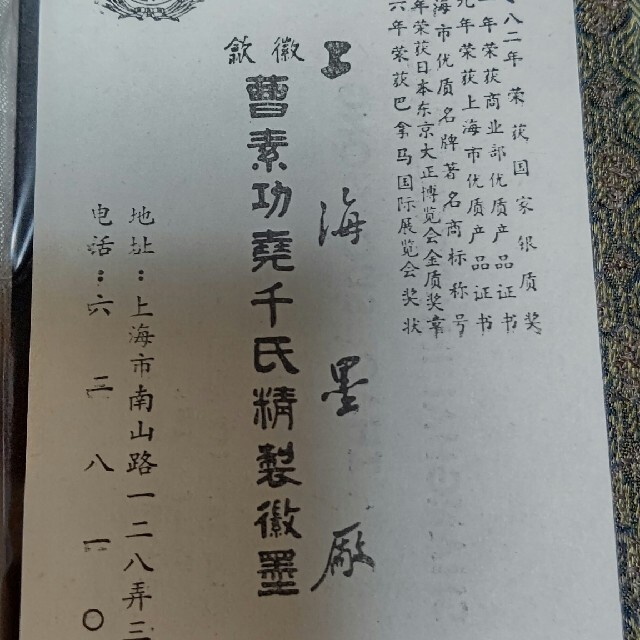 八二年荣获国家银质奖
年荣获商业部优质产品证书
年荣获上海市优质产品证书
海市优质名牌著名商标称号
年荣获日本东京大正博览会金质奖章
六年荣获巴拿马国际展览会奖状
上海墨厰
徽歙
曹素功堯千氏精製徽墨
地址：上海市南山路一二八弄三
电话：六三八一〇